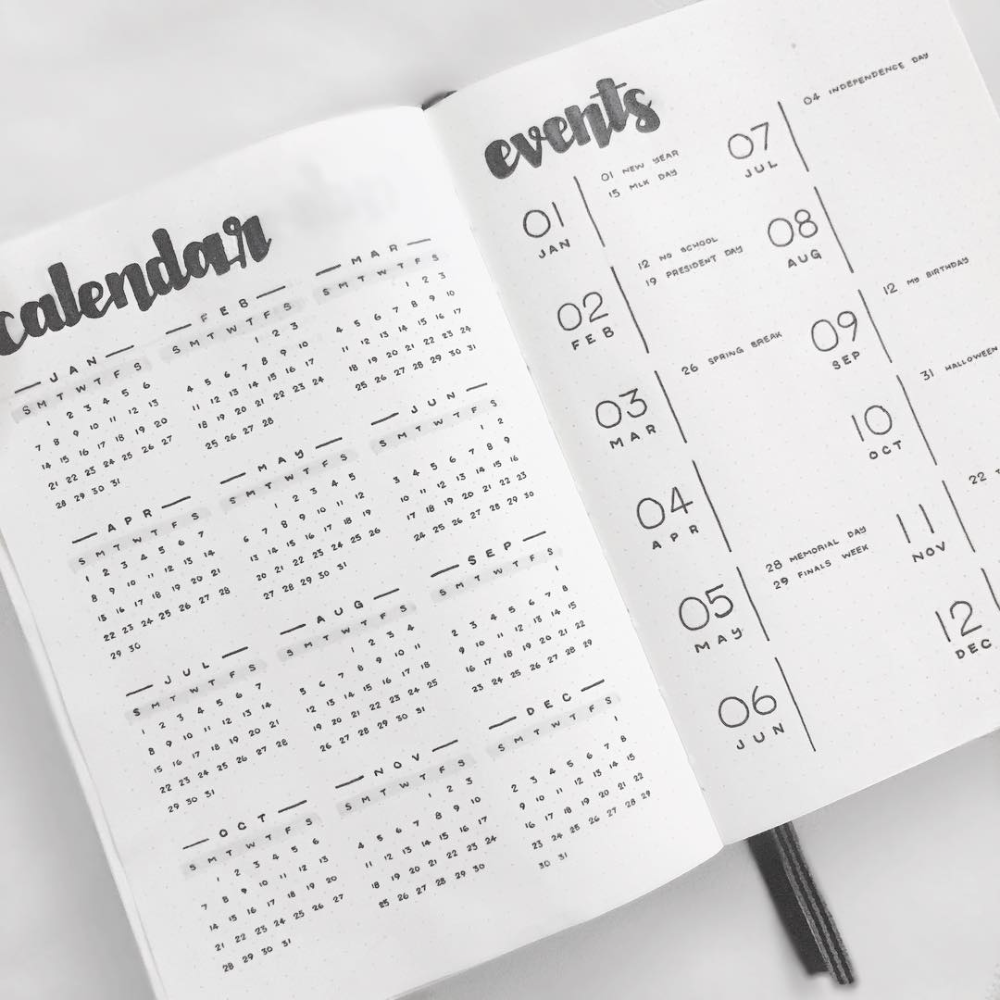 calendar
JAN
S M T W T F S
1 2 3 4 5 6
7 8 9 10 11 12 13
14 15 16 17 18 19 20
21 22 23 24 25 26 27
28 29 30 31
FEB
S M T W T F S
1 2 3
4 5 6 7 8 9 10
11 12 13 14 15 16 17
18 19 20 21 22 23 24
25 26 27 28
MAR
S M T W T F S
1 2 3
4 5 6 7 8 9 10
11 12 13 14 15 16 17
18 19 20 21 22 23 24
25 26 27 28 29 30 31
APR
S M T W T F S
1 2 3 4 5 6 7
8 9 10 11 12 13 14
15 16 17 18 19 20 21
22 23 24 25 26 27 28
29 30
MAY
S M T W T F S
1 2 3 4 5
6 7 8 9 10 11 12
13 14 15 16 17 18 19
20 21 22 23 24 25 26
27 28 29 30 31
JUN
S M T W T F S
1 2
3 4 5 6 7 8 9
10 11 12 13 14 15 16
17 18 19 20 21 22 23
24 25 26 27 28 29 30
JUL
S M T W T F S
1 2 3 4 5 6 7
8 9 10 11 12 13 14
15 16 17 18 19 20 21
22 23 24 25 26 27 28
29 30 31
AUG
S M T W T F S
1 2 3 4
5 6 7 8 9 10 11
12 13 14 15 16 17 18
19 20 21 22 23 24 25
26 27 28 29 30 31
SEP
S M T W T F S
1
2 3 4 5 6 7 8
9 10 11 12 13 14 15
16 17 18 19 20 21 22
23 24 25 26 27 28 29
OCT
S M T W T F S
1 2 3 4 5 6
7 8 9 10 11 12 13
14 15 16 17 18 19 20
21 22 23 24 25 26 27
28 29 30 31
NOV
S M T W T F S
1 2 3
4 5 6 7 8 9 10
11 12 13 14 15 16 17
18 19 20 21 22 23 24
25 26 27 28 29 30
DEC
S M T W T F S
1
2 3 4 5 6 7 8
9 10 11 12 13 14 15
16 17 18 19 20 21 22
23 24 25 26 27 28 29
30 31
events
01
JAN
01 NEW YEAR
15 MLK DAY
02
FEB
12 NO SCHOOL
19 PRESIDENT DAY
03
MAR
26 SPRING BREAK
04
APR
05
MAY
28 MEMORIAL DAY
29 FINALS WEEK
06
JUN
07
JUL
04 INDEPENDENCE DAY
08
AUG
09
SEP
12 MB BIRTHDAY
10
OCT
31 HALLOWEEN
11
NOV
22
12
DEC